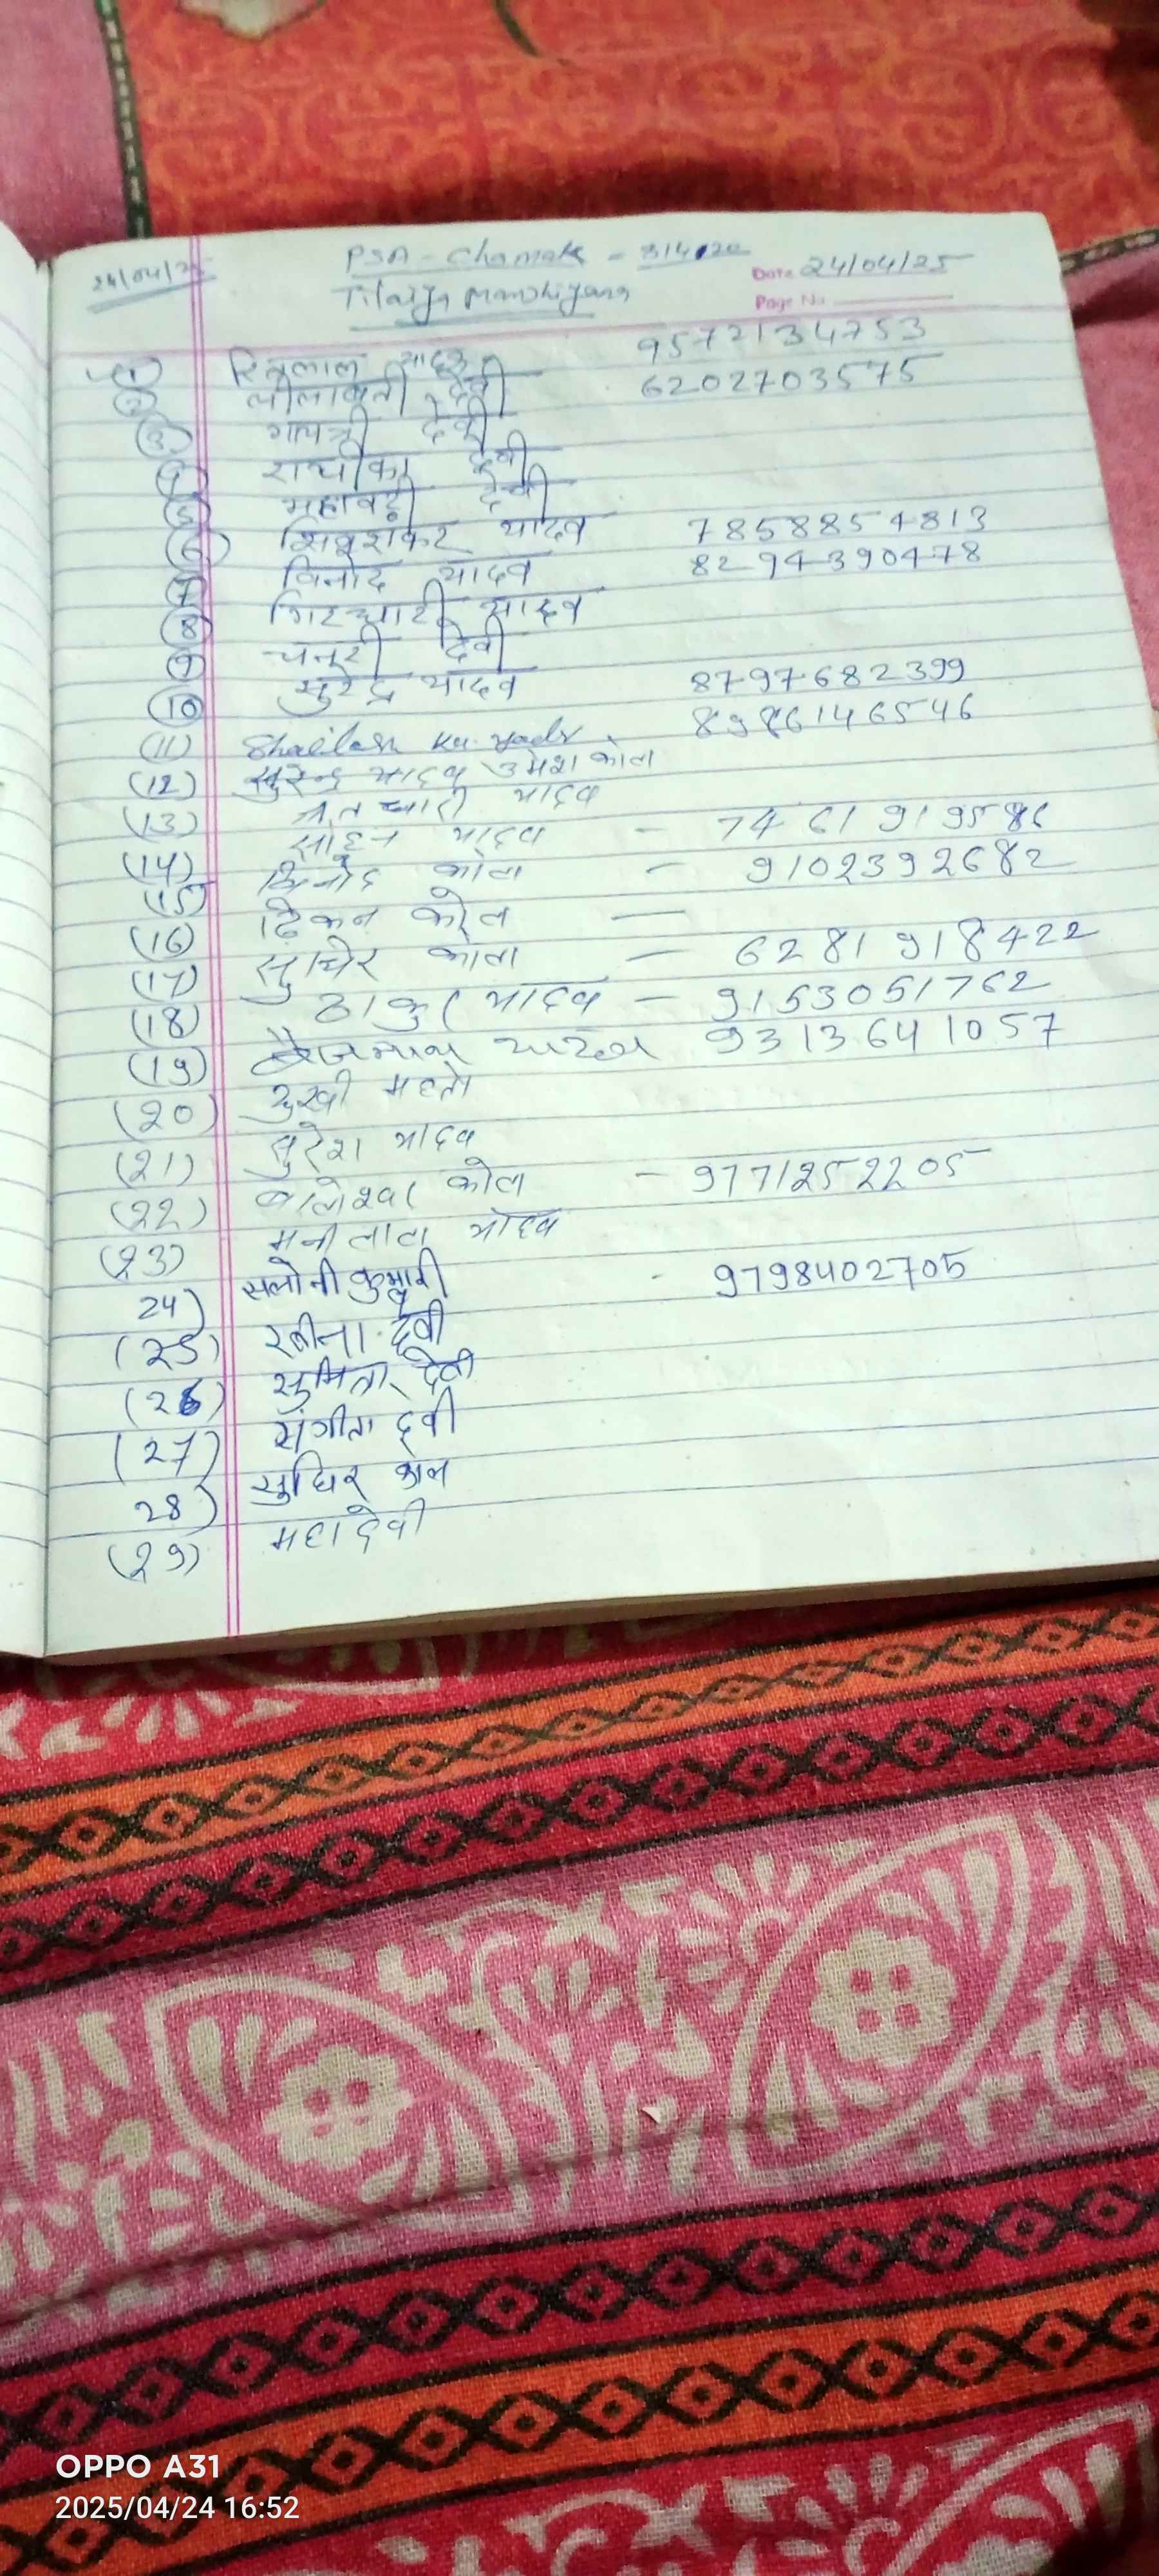 24/04/25
PSA - Chamak - 3/4/20
Date 24/04/25
Tilaiya
Page No.
(1) यादव 9572134753
(2) लीलावती देवी 6202703575
(3) गायत्री देवी
(4) राधीका देवी
(5) देवी
(6) शिवशंकर यादव 7858854813
(7) विनोद यादव 8294390478
(8) गिरधारी यादव
(9) देवी
(10) सुरेन्द्र यादव 8797682399
(11) Shailesh Ku. Yadv 8986146546
(12) सुरेन्द्र यादव उमेश कोल
(13) यादव
(14) यादव - 7461919586
(15) बिनोद कोल - 9102392682
(16) ढिकन कोल —
(17) सुधिर कोल - 6281918422
(18) ठाकुर यादव - 9153051762
(19) बैजनाथ यादव 9313641057
(20) दुखी महतो
(21) सुरेश यादव
(22) बालेश्वर कोल - 9771252205
(23) मनीलाल यादव
24) सलोनी कुमारी - 9798402705
(25) रबीना देवी
(26) सुमिता देवी
(27) संगीता देवी
28) सुधिर कोल
(29) महादेवी
OPPO A31
2025/04/24 16:52